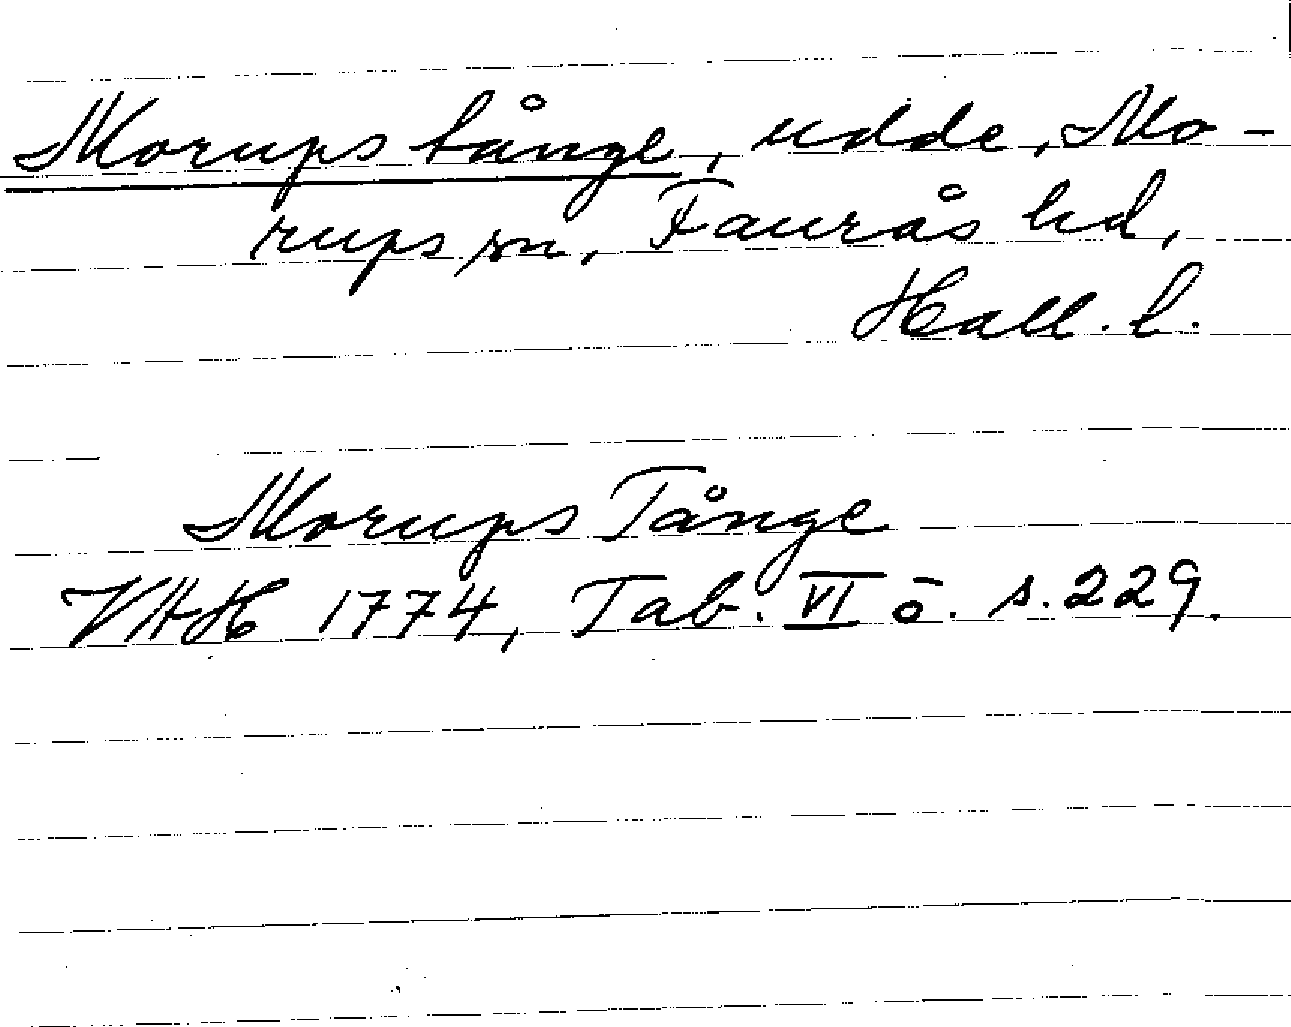 Morups tånge, udde, Mo-
rups sn, Faurås hd,
Hall. l.
Morups Tånge
VHH 1774, Tab. VI ō. s. 229.